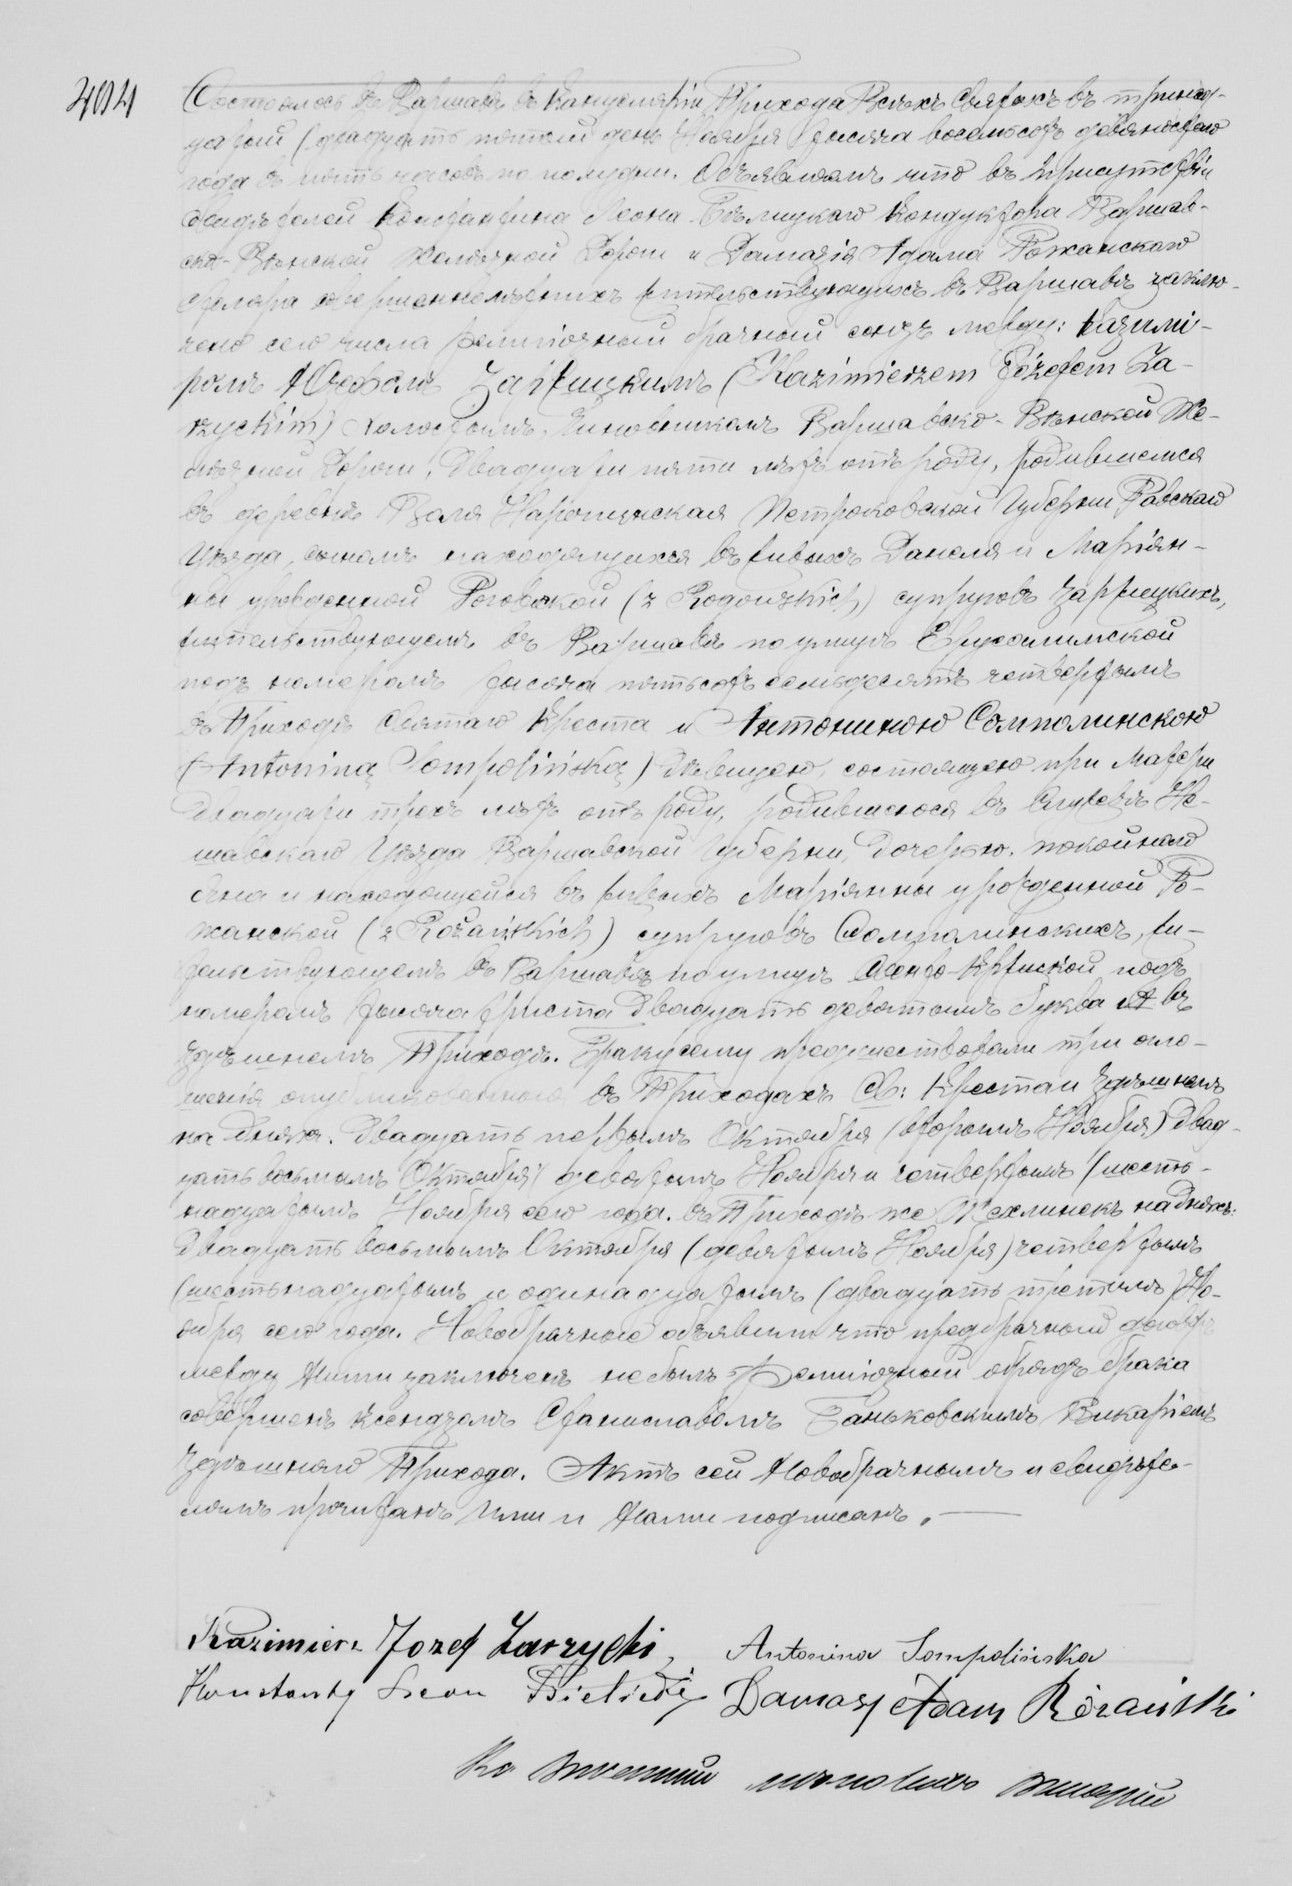 404
Состоялось въ Варшавѣ въ Канцеляріи Прихода Всѣхъ Святыхъ въ тринад-
цатый (двадцать пятый день Ноября тысяча восемьсотъ девяностаго
года въ пять часовъ по полудни. Объявляемъ что въ присутствіи
свидѣтелей Константина Леона Бѣлицкаго Кондуктора Варшав-
ско-Вѣнской Желѣзной Дороги и Дамазія Адама Рожанскаго
Столяра совершеннолѣтнихъ жительствующихъ въ Варшавѣ заклю-
ченъ сего числа религіозный брачный союзъ между: Казимі-
ромъ Юзефомъ Заржицкимъ (Kazimierzem Józefem Za-
rzyckim) холостымъ, Чиновникомъ Варшавско-Вѣнской Же-
лѣзной Дороги, двадцати пяти лѣтъ отъ роду, родившемся
въ деревнѣ Воля Наропинская Петроковской Губерніи Равскаго
Уѣзда, сыномъ находящихся въ живыхъ Даніеля и Маріян-
ны урожденной Роговской (z Rogowskich) супруговъ Заржицкихъ,
жительствующемъ въ Варшавѣ по улицѣ Ерусалимской
подъ номеромъ тысяча пятьсотъ семьдесятъ четвертымъ
въ Приходѣ Святаго Креста и Антониною Сомполинскою
(Antoniną Sompolińską) дѣвицею, состоящею при Матери
двадцати трехъ лѣтъ отъ роду, родившеюся въ Не-
шавскаго Уѣзда Варшавской Губерніи, дочерью, покойнаго
Яна и находящейся въ живыхъ Маріянны урожденной Ро-
жанской (z Rożańskich) супруговъ Сомполинскихъ, жи-
тельствующемъ въ Варшавѣ по улицѣ Свенто-Кржиской подъ
номеромъ тысяча триста двадцать девятымъ буква А въ
здѣшнемъ Приходѣ. Браку сему предшествовали три огло-
шенія опубликованныя въ Приходахъ Св: Креста и здѣшнемъ
на дняхъ: двадцать первымъ Октября (вторымъ Ноября) двад-
цать восьмымъ Октября (девятымъ Ноября и четвертымъ (шест-
надцатымъ Ноября сего года. въ Приходѣ же на дняхъ:
двадцать восьмымъ Октября (девятымъ Ноября) четвертымъ
(шестьнадцатымъ и одинадцатымъ (двадцать третьимъ) Но-
ября сего года. Новобрачные объявили что предбрачный договоръ
между Ними заключенъ не былъ. Религіозный обрядъ брака
совершенъ Ксендзомъ Станиславомъ Баньковскимъ Викаріемъ
здѣшняго Прихода. Актъ сей Новобрачнымъ и свидѣте-
лямъ прочитанъ Ими и Нами подписанъ. —
Kazimierz Jozef Zarzycki, Antonina Sompolińska
Konstanty Leon Bielicki Damazy Adam Różański